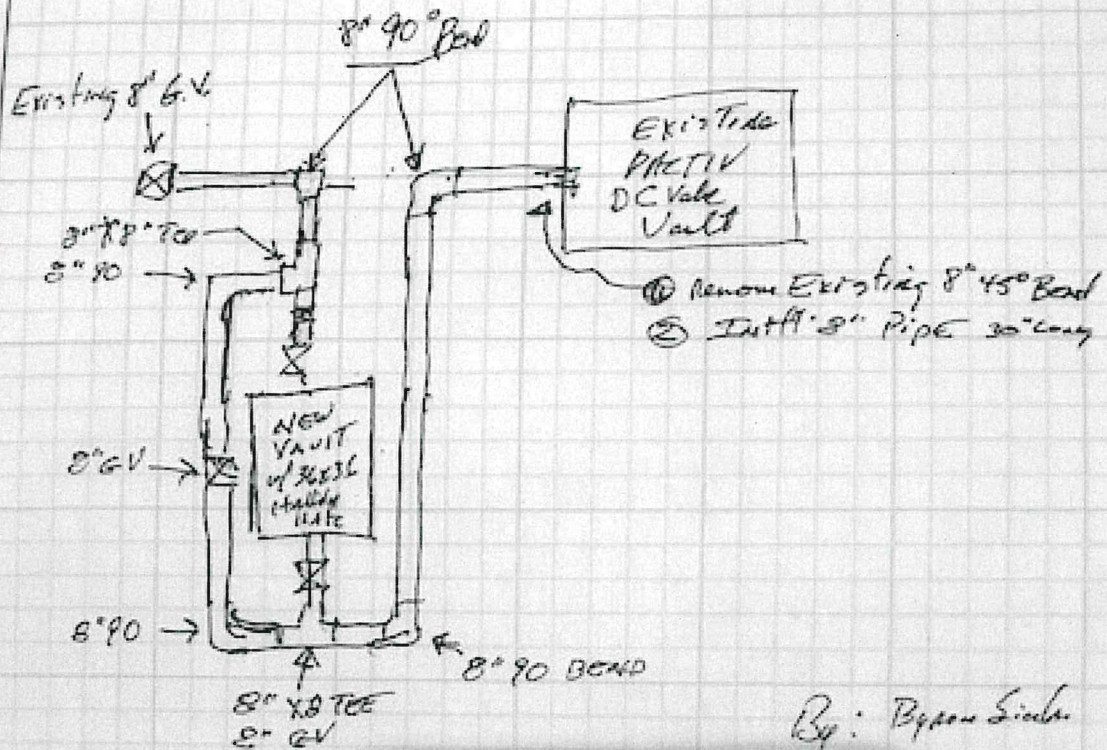 8" 90° Bend
Existing 8" G.V.
EXISTING
DC Valve
Vault
8" X 8" TEE
8" 90
① Remove Existing 8" 45° Bend
② Install 8" PIPE 30" Long
NEW
VAULT
w/ 36x36
8" GV
8" 90
8" 90 BEND
8" X 8 TEE
8" GV
By: Byron